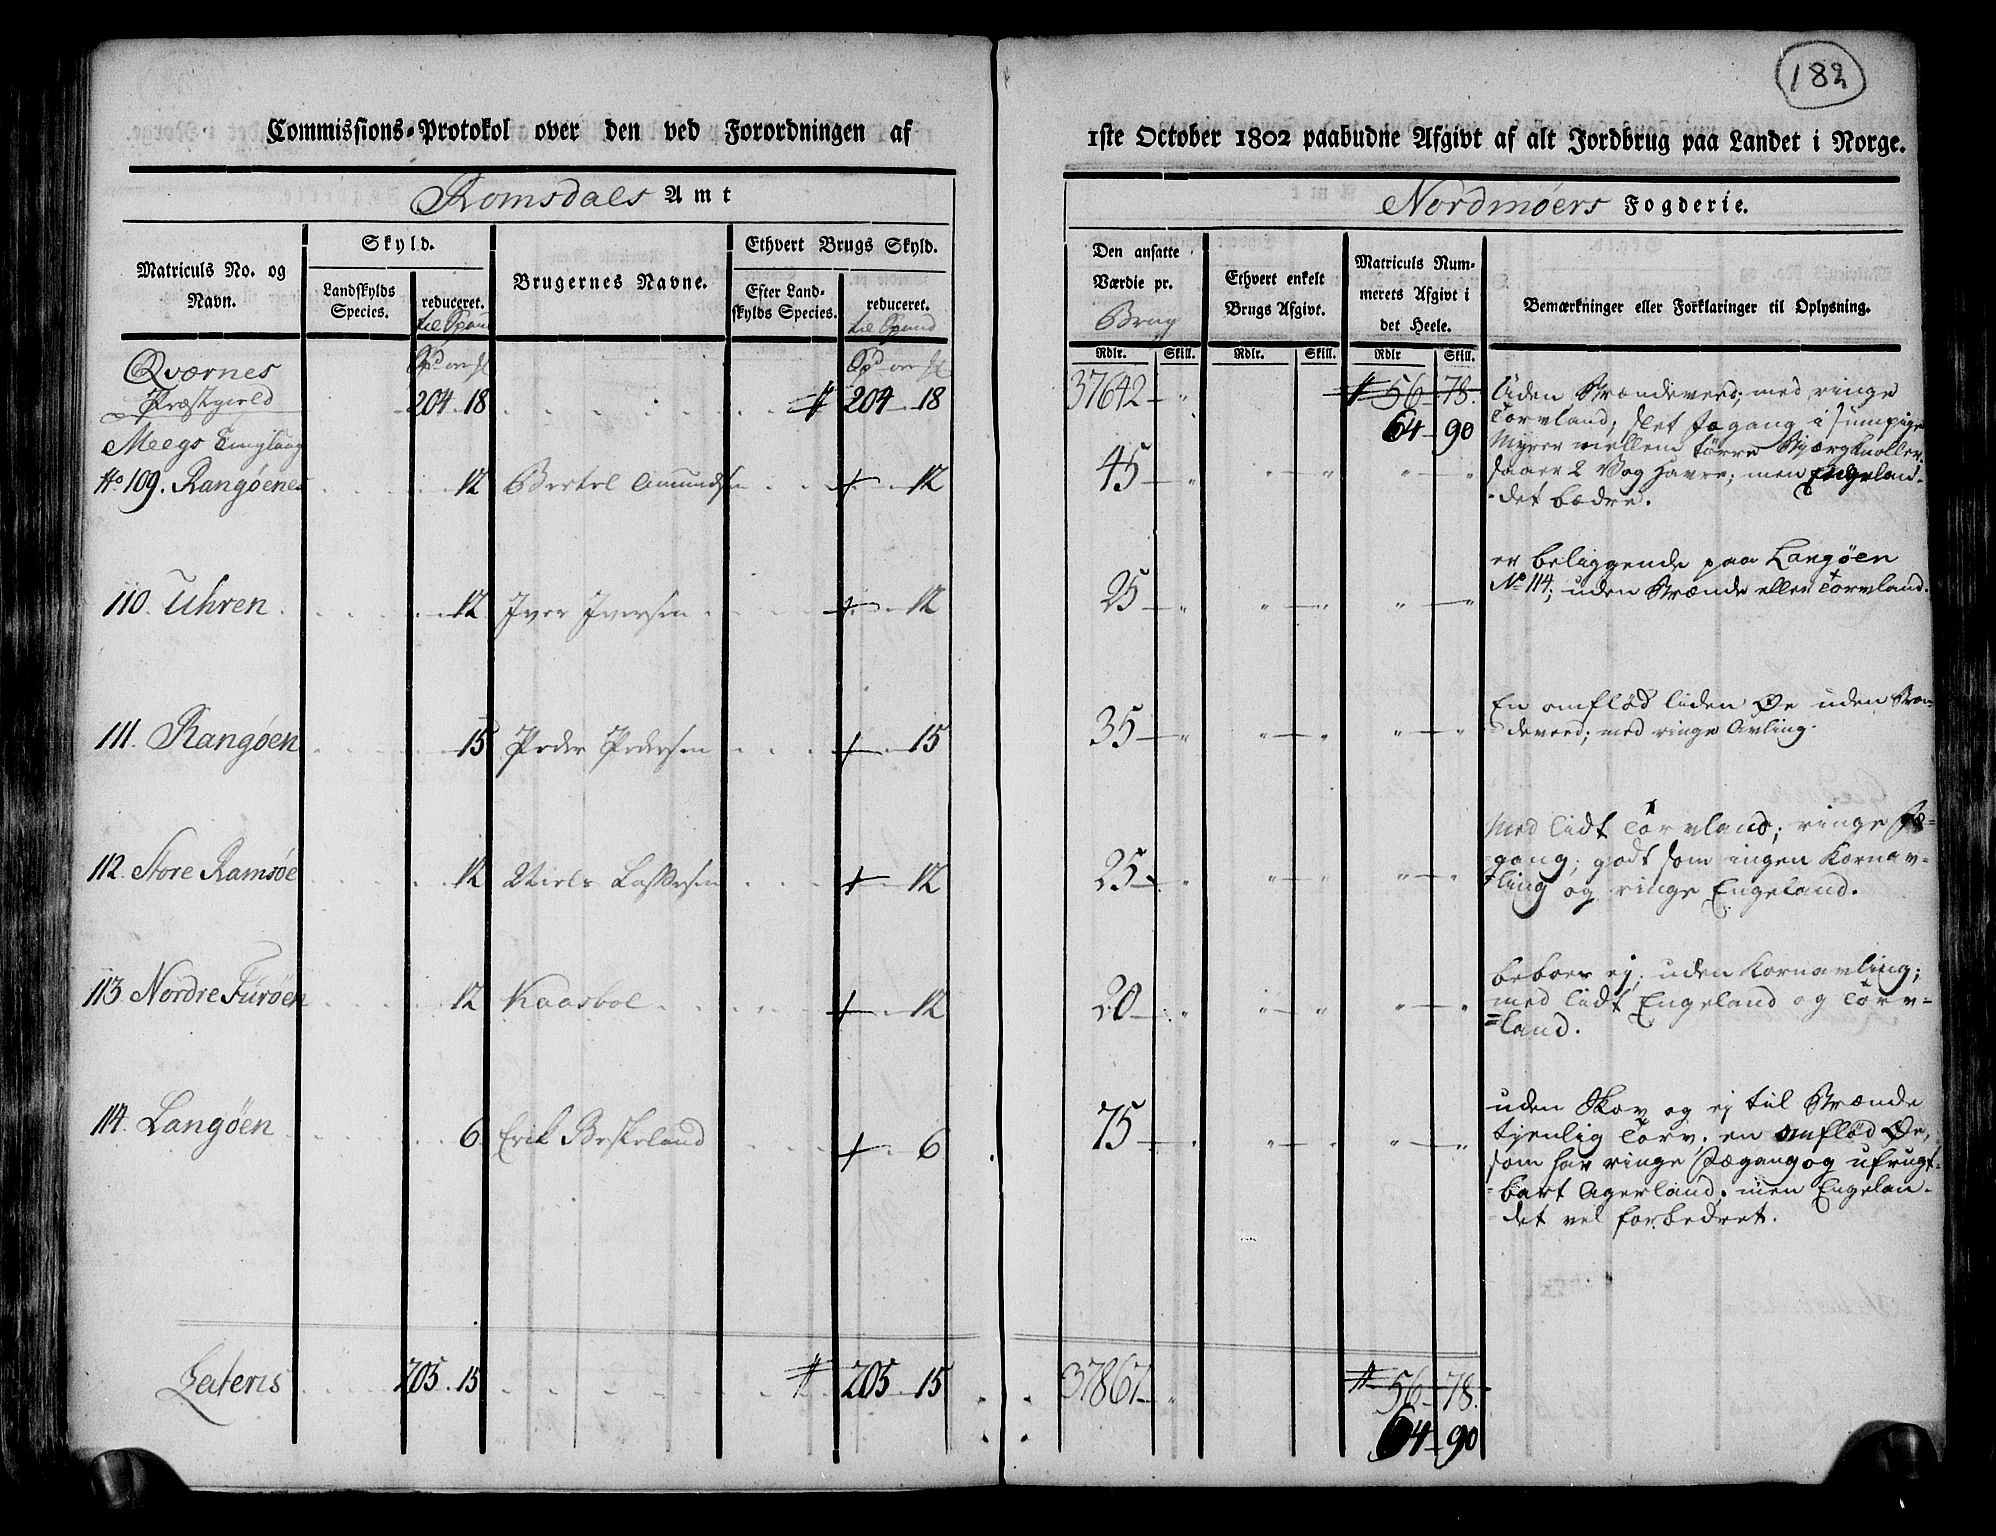 182
Commissions-Protokol over den ved Forordningen af
1ste October 1802 paabudne Afgivt af alt Jordbrug paa Landet i Norge.
Romsdals Amt
Nordmøers Fogderie.
Matriculs No. og Navn.
Skyld.
Landskylds Species.
reduceret.
til Spand
Brugernes Navne.
Ethvert Brugs Skyld.
Efter Landskylds Species.
reduceret.
til Spand
Den ansatte Værdie pr.
Brug
Ethvert enkelt Brugs Afgivt.
Matriculs Nummerets Afgivt i det Heele.
Bemærkninger eller Forklaringer til Oplysning.
Rdlr. Skill. Rdlr. Skill. Rdlr Skill.
Qværnes
Præstgield 204 18 204 18 37642 56 78
64 90
Meegs Tinglaug
No 109. Rangøenes 12 Bertel Amundsen 12 45
Uden Strændeveed; med ringe
Torvland; slet Fægang i sumpige
Myrer mellem tørre Bjærgknoller.
saaer 2 Vog Havre; men Engelan-
det bædre.
110. Uhren 12 Iver Iversen 12 25
er beliggende paa Langøen
No 114; uden Brænde eller Torvland.
111. Rangøen 15 Peder Pedersen 15 35
En omflød liden Øe uden Bræn-
deveed; med ringe Avling.
112. Store Ramsøe 12 Niels Lassesen 12 25
Med lidt Torvland; ringe Fæ-
gang; godt som ingen Kornav-
ling og ringe Engeland.
113. Nordre Furøen 12 Kaasboe 12 20
beboes ej; uden Kornavling;
med lidt Engeland og Torv-
land.
114. Langøen 6 Erik Beskeland 6 75
uden Skov og ej til Brænde
tjenlig Torv; en omflød Øe,
som har ringe Fægang og ufrugt-
bart Agerland; men Engelan-
det vel forbedret.
Lateris 205 15 205 15 37867 56 78
64 90